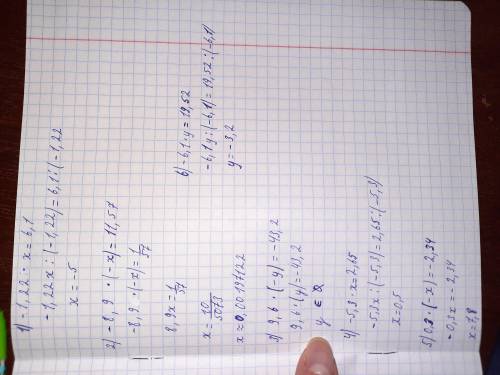 1) -1,22 · x = 6,1
-1,22x : (-1,22) = 6,1 : (-1,22
x = -5
2) -8,9 · (-x) = 11,57
-8,9 · (-x) = 1/57
8,9x = 1/57
x = 10/5073
x ≈ 0,00197122
3) 9,6 · (-y) = -43,2
9,6 · (y) = -43,2
y ∈ Q
4) -5,3 · x = 2,65
-5,3x : (-5,3) = 2,65 : (-5,3)
x = 0,5
5) 0,3 · (-x) = -2,34
-0,3x = -2,34
x = 7,8
6) -6,1 · y = 19,52
-6,1y : (-6,1) = 19,52 : (-6,1)
y = -3,2